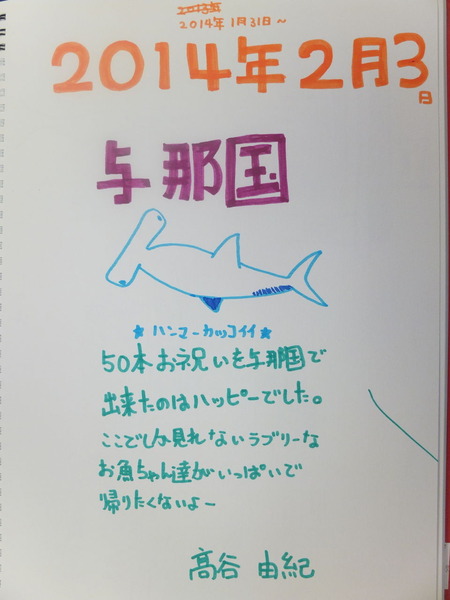 2014年1月31日~
2014年2月3日
与那国
★ハンマーカッコイイ★
50本お祝いを与那国で
出来たのはハッピーでした。
ここでしか見れないラブリーな
お魚ちゃん達がいっぱいで
帰りたくないよー
髙谷 由紀